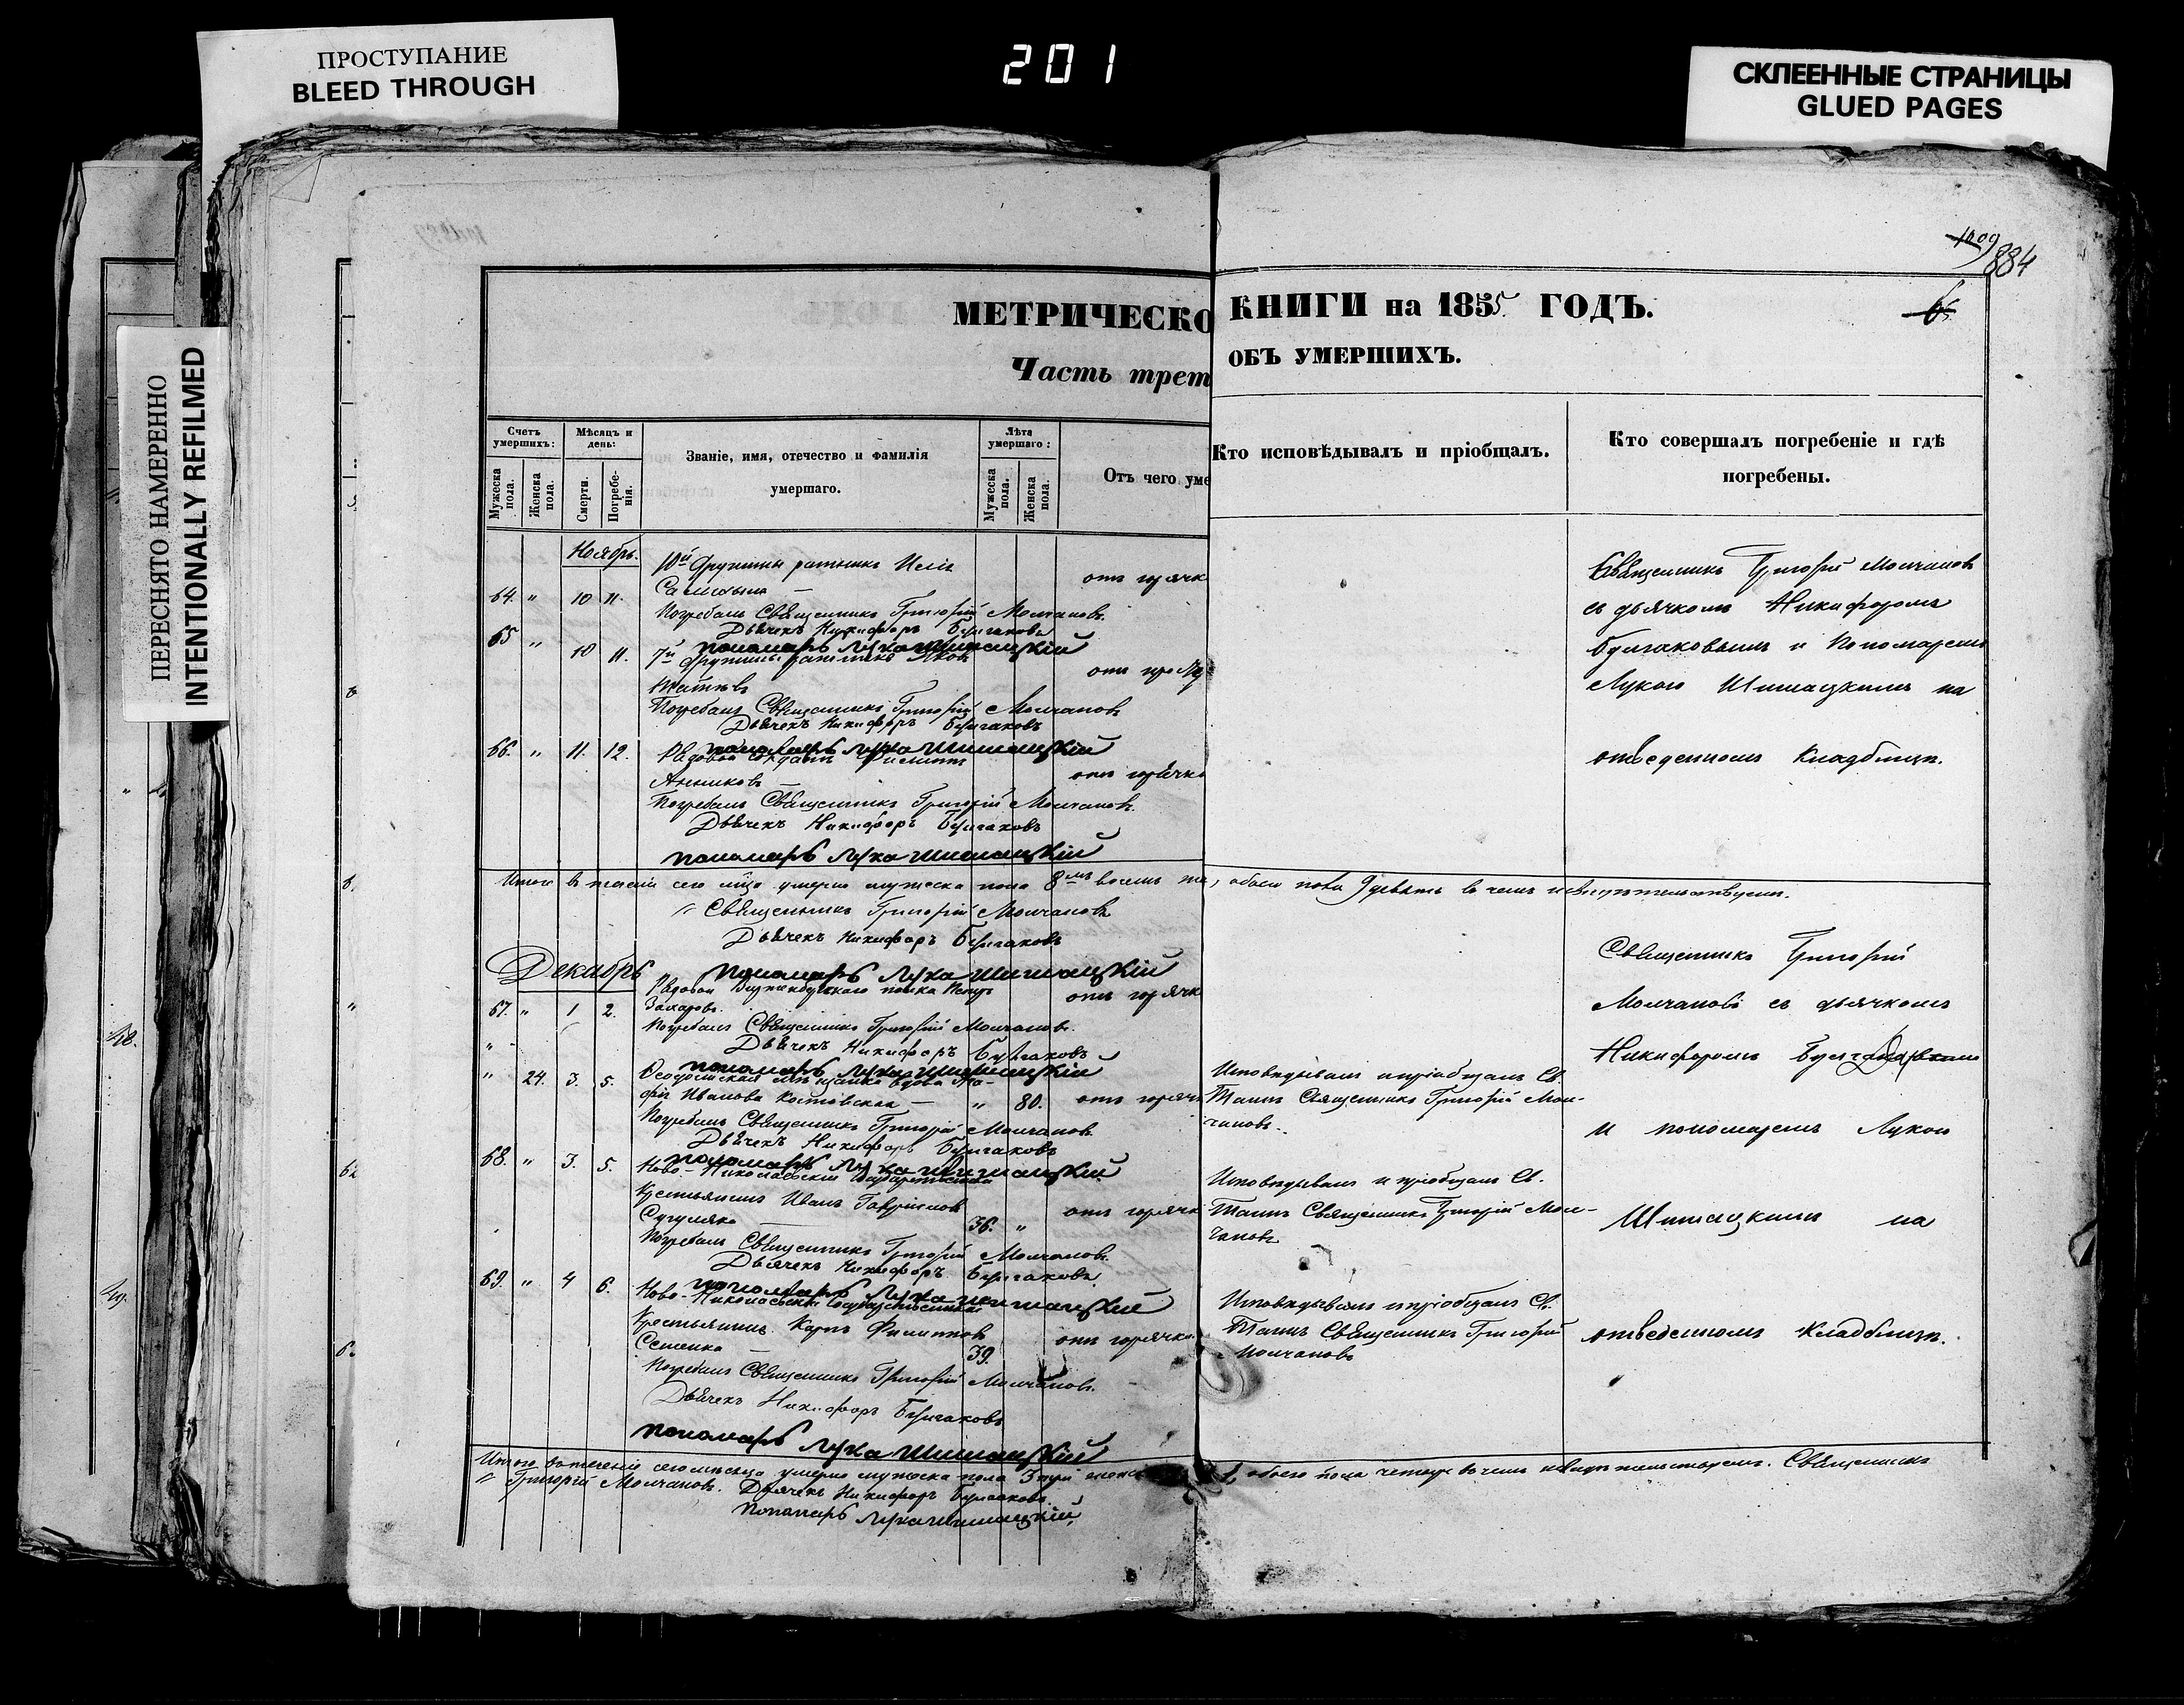 ПРОСТУПАНИЕ
BLEED THROUGH
201
СКЛЕЕННЫЕ СТРАНИЦЫ
GLUED PAGES
ПЕРЕСНЯТО НАМЕРЕННО
INTENTIONALLY REFILMED
1009
884
МЕТРИЧЕСКО КНИГИ на 1855 ГОДЪ.
Часть трет ОБЪ УМЕРШИХЪ.
Счетъ умершихъ:
Мужеска пола.
Женска пола.
Мѣсяцъ и день:
Смерти.
Погребенія.
Званіе, имя, отечество и фамилія
умершаго.
Лѣта умершаго:
Мужеска пола.
Женска пола.
Отъ чего уме
Кто исповѣдывалъ и пріобщалъ.
Кто совершалъ погребеніе и гдѣ
погребены.
Ноябрь.
64. " 10 11.
10й Дружины ратникъ
отъ горячк
Погребалъ Священникъ Григорій Молчановъ.
Дьячекъ Никифоръ Булгаковъ
пономарь Лука Шишацкій
65 " 10 11.
7й Дружины ратникъ Яковъ
Погребалъ Священникъ Григорій Молчановъ
Дьячекъ Никифоръ Булгаковъ
пономарь Лука Шишацкій
66. " 11. 12.
Рядовой солдатъ Филиппъ
Анниковъ
отъ горячк
Погребалъ Священникъ Григорій Молчановъ.
Дьячекъ Никифоръ Булгаковъ
пономарь Лука Шишацкій
Священникъ Григорій Молчановъ
съ дьячкомъ Никифоромъ
Булгаковымъ и Пономаремъ
Лукою Шишацкимъ на
отведенномъ Кладбищѣ.
Итого въ теченіи сего мѣсяца умерло мужеска пола 8мъ восемь обоего пола 9 девять въ чемъ и свидѣтельствуемъ.
Священникъ Григорій Молчановъ
Дьячекъ Никифоръ Булгаковъ
пономарь Лука Шишацкій
Декабрь
67. " 1 2.
Рядовой полка Петръ
Захаровъ.
отъ горячк
Погребалъ Священникъ Григорій Молчановъ.
Дьячекъ Никифоръ Булгаковъ
пономарь Лука Шишацкій
" 24. 3. 5.
вдова
Иванова " 80.
отъ горячк
Погребалъ Священникъ Григорій Молчановъ
Дьячекъ Никифоръ Булгаковъ
пономарь Лука Шишацкій
Исповѣдывалъ и пріобщалъ Св.
Таинъ Священникъ Григорій Мол-
чановъ.
68. " 3. 5.
Ново-Николаевскій Государственный
Крестьянинъ Иванъ Гавриловъ
36. "
отъ горячк
Погребалъ Священникъ Григорій Молчановъ.
Дьячекъ Никифоръ Булгаковъ.
пономарь Лука Шишацкій
Исповѣдывалъ и пріобщалъ Св.
Таинъ Священникъ Григорій Мол-
чановъ
69. " 4 6.
Ново-Николаевскій Государственный
Крестьянинъ Карпъ Филипповъ
Семенко 39.
отъ горячки
Погребалъ Священникъ Григорій Молчановъ.
Дьячекъ Никифоръ Булгаковъ
пономарь Лука Шишацкій
Исповѣдывалъ и пріобщалъ Св.
Таинъ Священникъ Григорій
Молчановъ
Священникъ Григорій
Молчановъ съ дьячкомъ
Никифоромъ
и пономаремъ Лукою
Шишацкимъ на
отведенномъ Кладбищѣ.
Итого въ теченіе сего мѣсяца умерло мужеска пола 3 три 1, обоего пола четыре въ чемъ и свидѣтельствуемъ. Священникъ
Григорій Молчановъ. Дьячекъ Никифоръ Булгаковъ.
Пономарь Лука Шишацкій